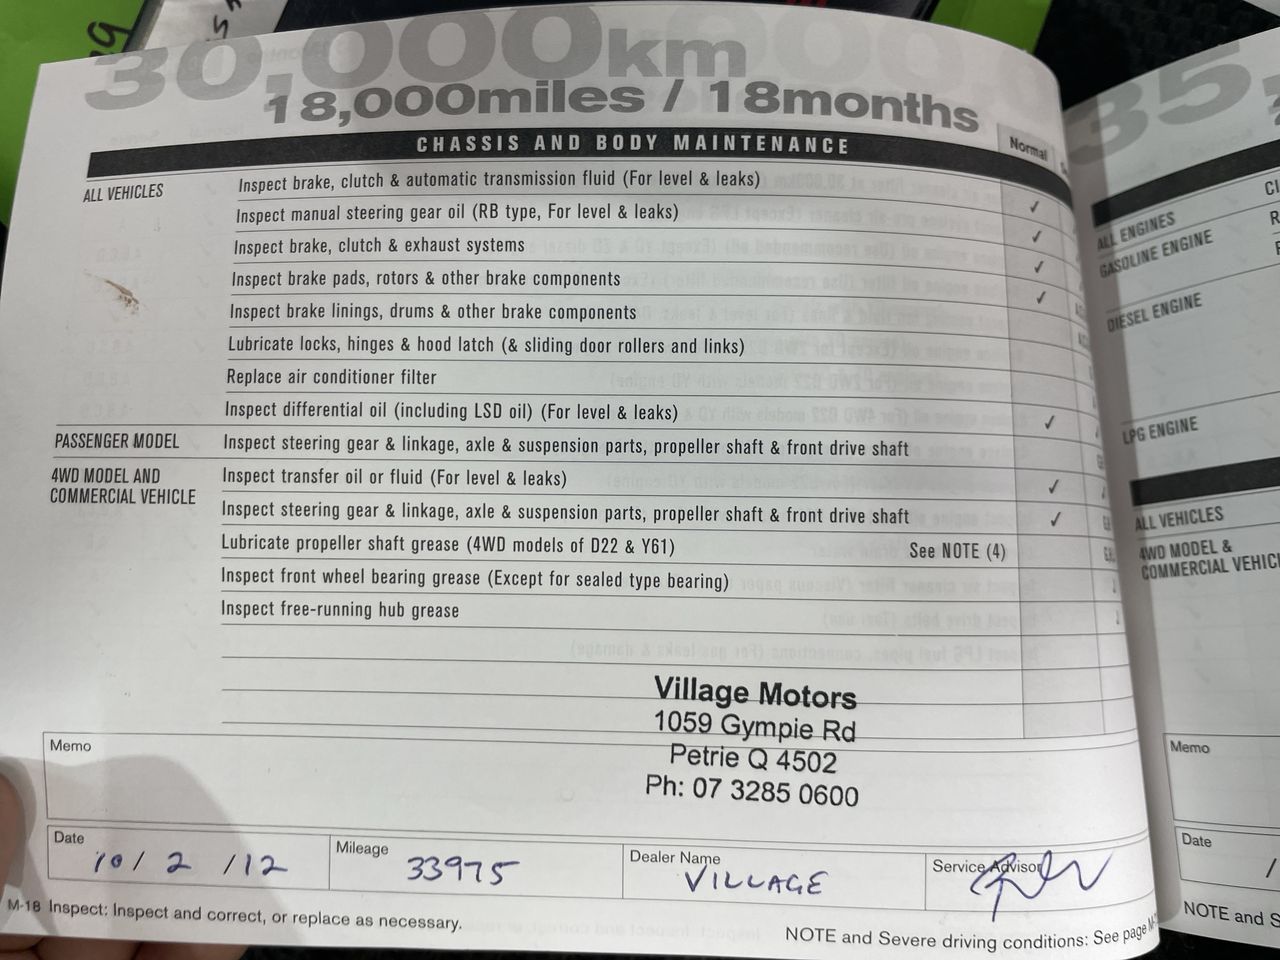 30,000km
18,000miles / 18months
CHASSIS AND BODY MAINTENANCE
Normal
ALL VEHICLES
Inspect brake, clutch & automatic transmission fluid (For level & leaks) ✓
Inspect manual steering gear oil (RB type, For level & leaks) ✓
Inspect brake, clutch & exhaust systems ✓
Inspect brake pads, rotors & other brake components ✓
Inspect brake linings, drums & other brake components
Lubricate locks, hinges & hood latch (& sliding door rollers and links)
Replace air conditioner filter
Inspect differential oil (including LSD oil) (For level & leaks) ✓
PASSENGER MODEL
Inspect steering gear & linkage, axle & suspension parts, propeller shaft & front drive shaft
4WD MODEL AND
COMMERCIAL VEHICLE
Inspect transfer oil or fluid (For level & leaks) ✓
Inspect steering gear & linkage, axle & suspension parts, propeller shaft & front drive shaft ✓
Lubricate propeller shaft grease (4WD models of D22 & Y61) See NOTE (4)
Inspect front wheel bearing grease (Except for sealed type bearing)
Inspect free-running hub grease
Village Motors
1059 Gympie Rd
Petrie Q 4502
Ph: 07 3285 0600
Memo
Date
10/ 2 /12
Mileage
33975
Dealer Name
VILLAGE
Service Advisor
M-18 Inspect: Inspect and correct, or replace as necessary.
NOTE and Severe driving conditions: See page
35,
ALL ENGINES
GASOLINE ENGINE
DIESEL ENGINE
LPG ENGINE
ALL VEHICLES
4WD MODEL &
COMMERCIAL
Memo
Date
/
NOTE and